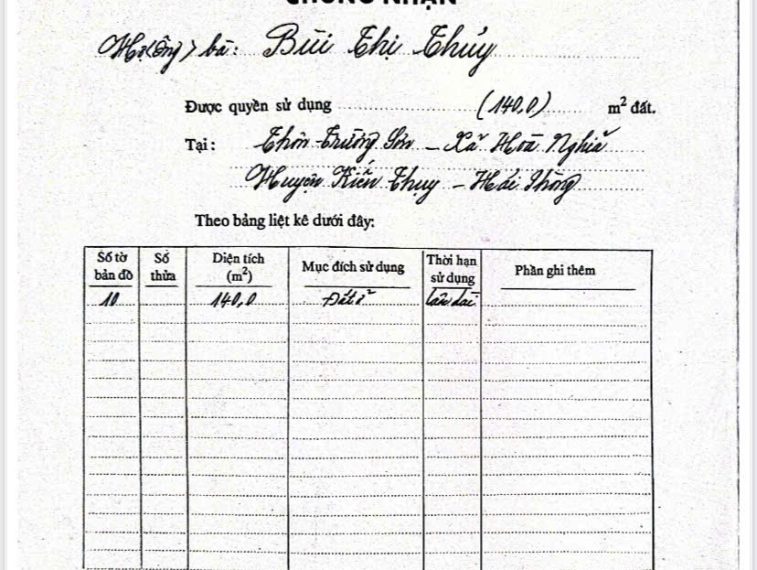 CHỨNG NHẬN
Hộ (ông) bà: Bùi Thị Thủy
Được quyền sử dụng (140,0) m² đất.
Tại: Thôn Trường Sơn - Xã Hoà Nghĩa
Huyện Kiến Thụy - Hải Phòng
Theo bảng liệt kê dưới đây:
Số tờ bản đồ Số thửa Diện tích (m²) Mục đích sử dụng Thời hạn sử dụng Phần ghi thêm
10 140,0 Đất ở Lâu dài